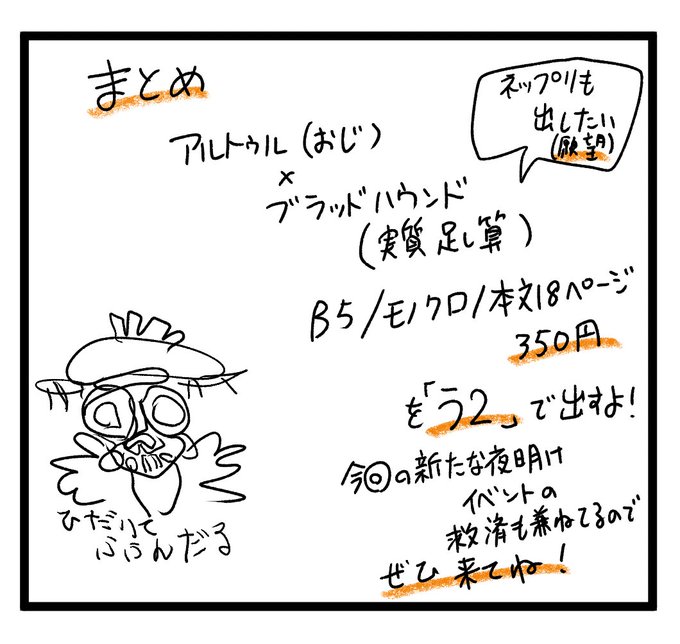 まとめ
ネップリも
出したい
(願望)
アルトゥル(おじ)
×
ブラッドハウンド
(実質足し算)
B5/モノクロ/本文18ページ
350円
を「う2」で出すよ!
今回の新たな夜明け
イベントの
救済も兼ねてるので
ぜひ来てね!
ひだりて
ふぅんだる